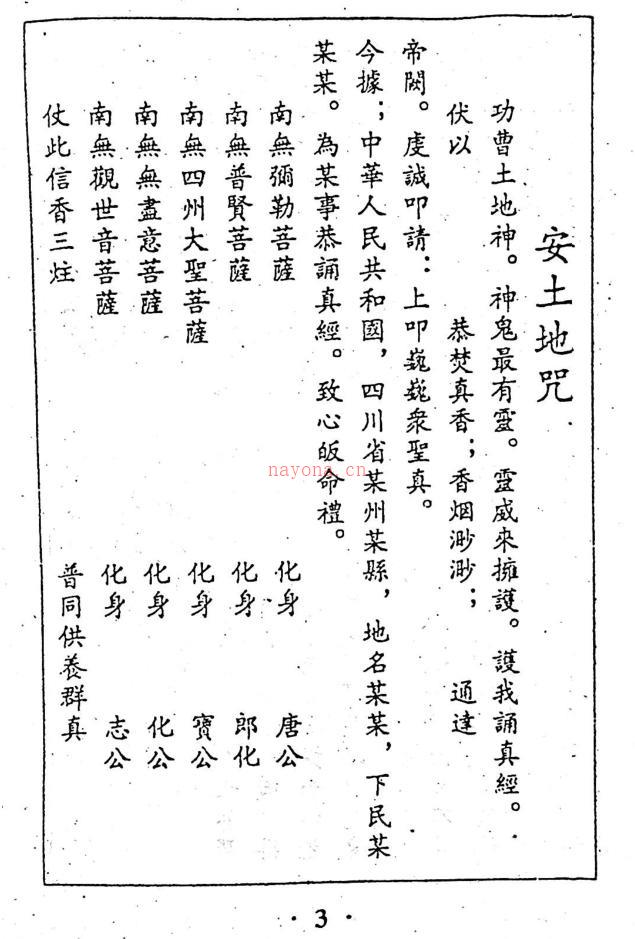 安土地咒
功曹土地神。神鬼最有靈。靈威來擁護。護我誦真經。
伏以 恭焚真香；香烟渺渺； 通達
帝闕。虔誠叩請：上叩巍巍衆聖真。
今據；中華人民共和國，四川省某州某縣，地名某某，下民某
某某。為某事恭誦真經。致心皈命禮。
南無彌勒菩薩 化身 唐公
南無普賢菩薩 化身 郎化
南無四州大聖菩薩 化身 寳公
南無無盡意菩薩 化身 化公
南無觀世音菩薩 化身 志公
仗此信香三炷 普同供養群真
nayong.cn
·3·